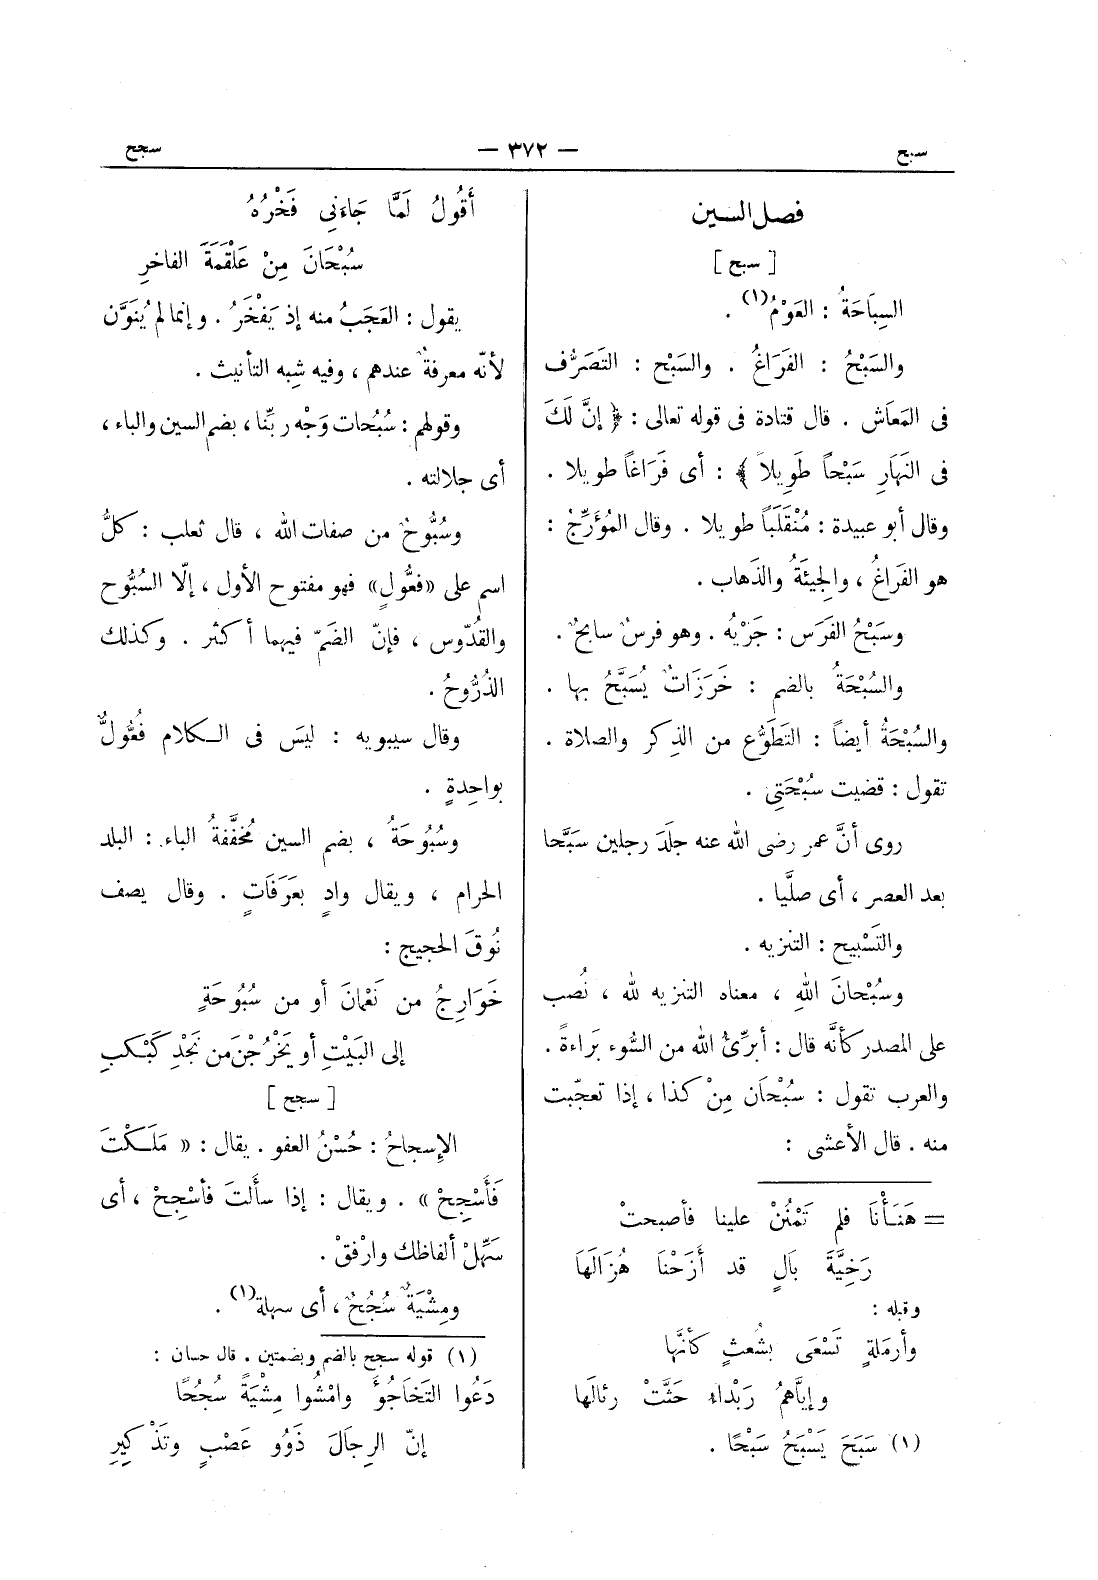 سبح
— ٣٧٢ —
سجح
فصل السين
[ سبح ]
السِبَاحَةُ : العَوْمُ(١) .
والسَبْحُ : الفَرَاغُ . والسَبْح : التَصَرُّف
فى المَعَاش . قال قتادة فى قوله تعالى : ﴿ إنَّ لَكَ
فى النَهَارِ سَبْحاً طَوِيلاً ﴾ : أى فَرَاغاً طويلا .
وقال أبو عبيدة : مُنْقَلَباً طويلا . وقال المُؤَرِّجُ :
هو الفَرَاغُ ، والجِيئَةُ والذَهاب .
وسَبْحُ الفَرَس : جَرْيُهُ . وهو فرسٌ سابحٌ .
والسُبْحَةُ بالضم : خَرَزَاتٌ يُسَبَّحُ بها .
والسُبْحَةُ أيضاً : التَطَوُّع من الذِكر والصلاة .
تقول : قضيت سُبْحَتِى .
روى أنَّ عمر رضى الله عنه جلَدَ رجلين سَبَّحا
بعد العصر ، أى صلَّيا .
والتَسْبيح : التنزيه .
وسُبْحانَ اللهِ ، معناه التنزيه لله ، نُصب
على المصدر كأنَّه قال : أبرِّئُ الله من السُّوء بَراءةً .
والعرب تقول : سُبْحَان مِنْ كذا ، إذا تعجّبت
منه . قال الأعشى :
= هَنَأْنَا فلم تَمْنُنْ علينا فأصبحتْ
رَخِيَّةَ بَالٍ قد أَزَحْنَا هُزَالَهَا
وقبله :
وأرمَلةٍ تَسْعَى بشُعثٍ كأنَّها
وإيَّاهمُ رَبْداءُ حَثَّتْ رئالَها
(١) سَبَحَ يَسْبَحُ سَبْحًا .
أَقُولُ لَمَّا جَاءَنِى فَخْرُهُ
سُبْحَانَ مِنْ عَلْقَمَةَ الفاخرِ
يقول : العَجَبُ منه إذ يَفْخَرُ . وإنما لم يُنَوَّن
لأنّه معرفةٌ عندهم ، وفيه شِبه التأنيث .
وقولهم : سُبُحات وَجْه ربِّنا ، بضم السين والباء ،
أى جلالته .
وسُبُّوحٌ من صفات الله ، قال ثعلب : كلُّ
اسم على «فعُّولٍ» فهو مفتوح الأول ، إلّا السُبُّوح
والقُدّوس ، فإنّ الضَمّ فيهما أكثر . وكذلك
الذُرُّوحُ .
وقال سيبويه : ليسَ فى الكلام فُعُّولٌ
بواحِدةٍ .
وسُبُوحَةُ ، بضم السين مُخفَّفةُ الباء : البلد
الحرام ، ويقال وادٍ بعَرَفَاتٍ . وقال يصف
نُوقَ الحجيج :
خَوَارِجُ من نَعْمَانَ أو من سُبُوحَةٍ
إلى البَيْتِ أو يَخْرُجْنَ من نَجْدِ كَبْكَبِ
[ سجح ]
الإسجاحُ : حُسْنُ العفو . يقال : « مَلَكْتَ
فَأَسْجِحْ » . ويقال : إذا سألتَ فأسْجِحْ ، أى
سَهِّلْ ألفاظك وارْفقْ .
ومِشْيَةٌ سُجُحٌ ، أى سهلة(١) .
(١) قوله سجح بالضم وبضمتين . قال حسان :
دَعُوا التَخَاجُؤَ وامْشُوا مِشْيَةً سُجُحًا
إنّ الرِجَالَ ذَوُو عَصْبٍ وتَذْكِيرِ